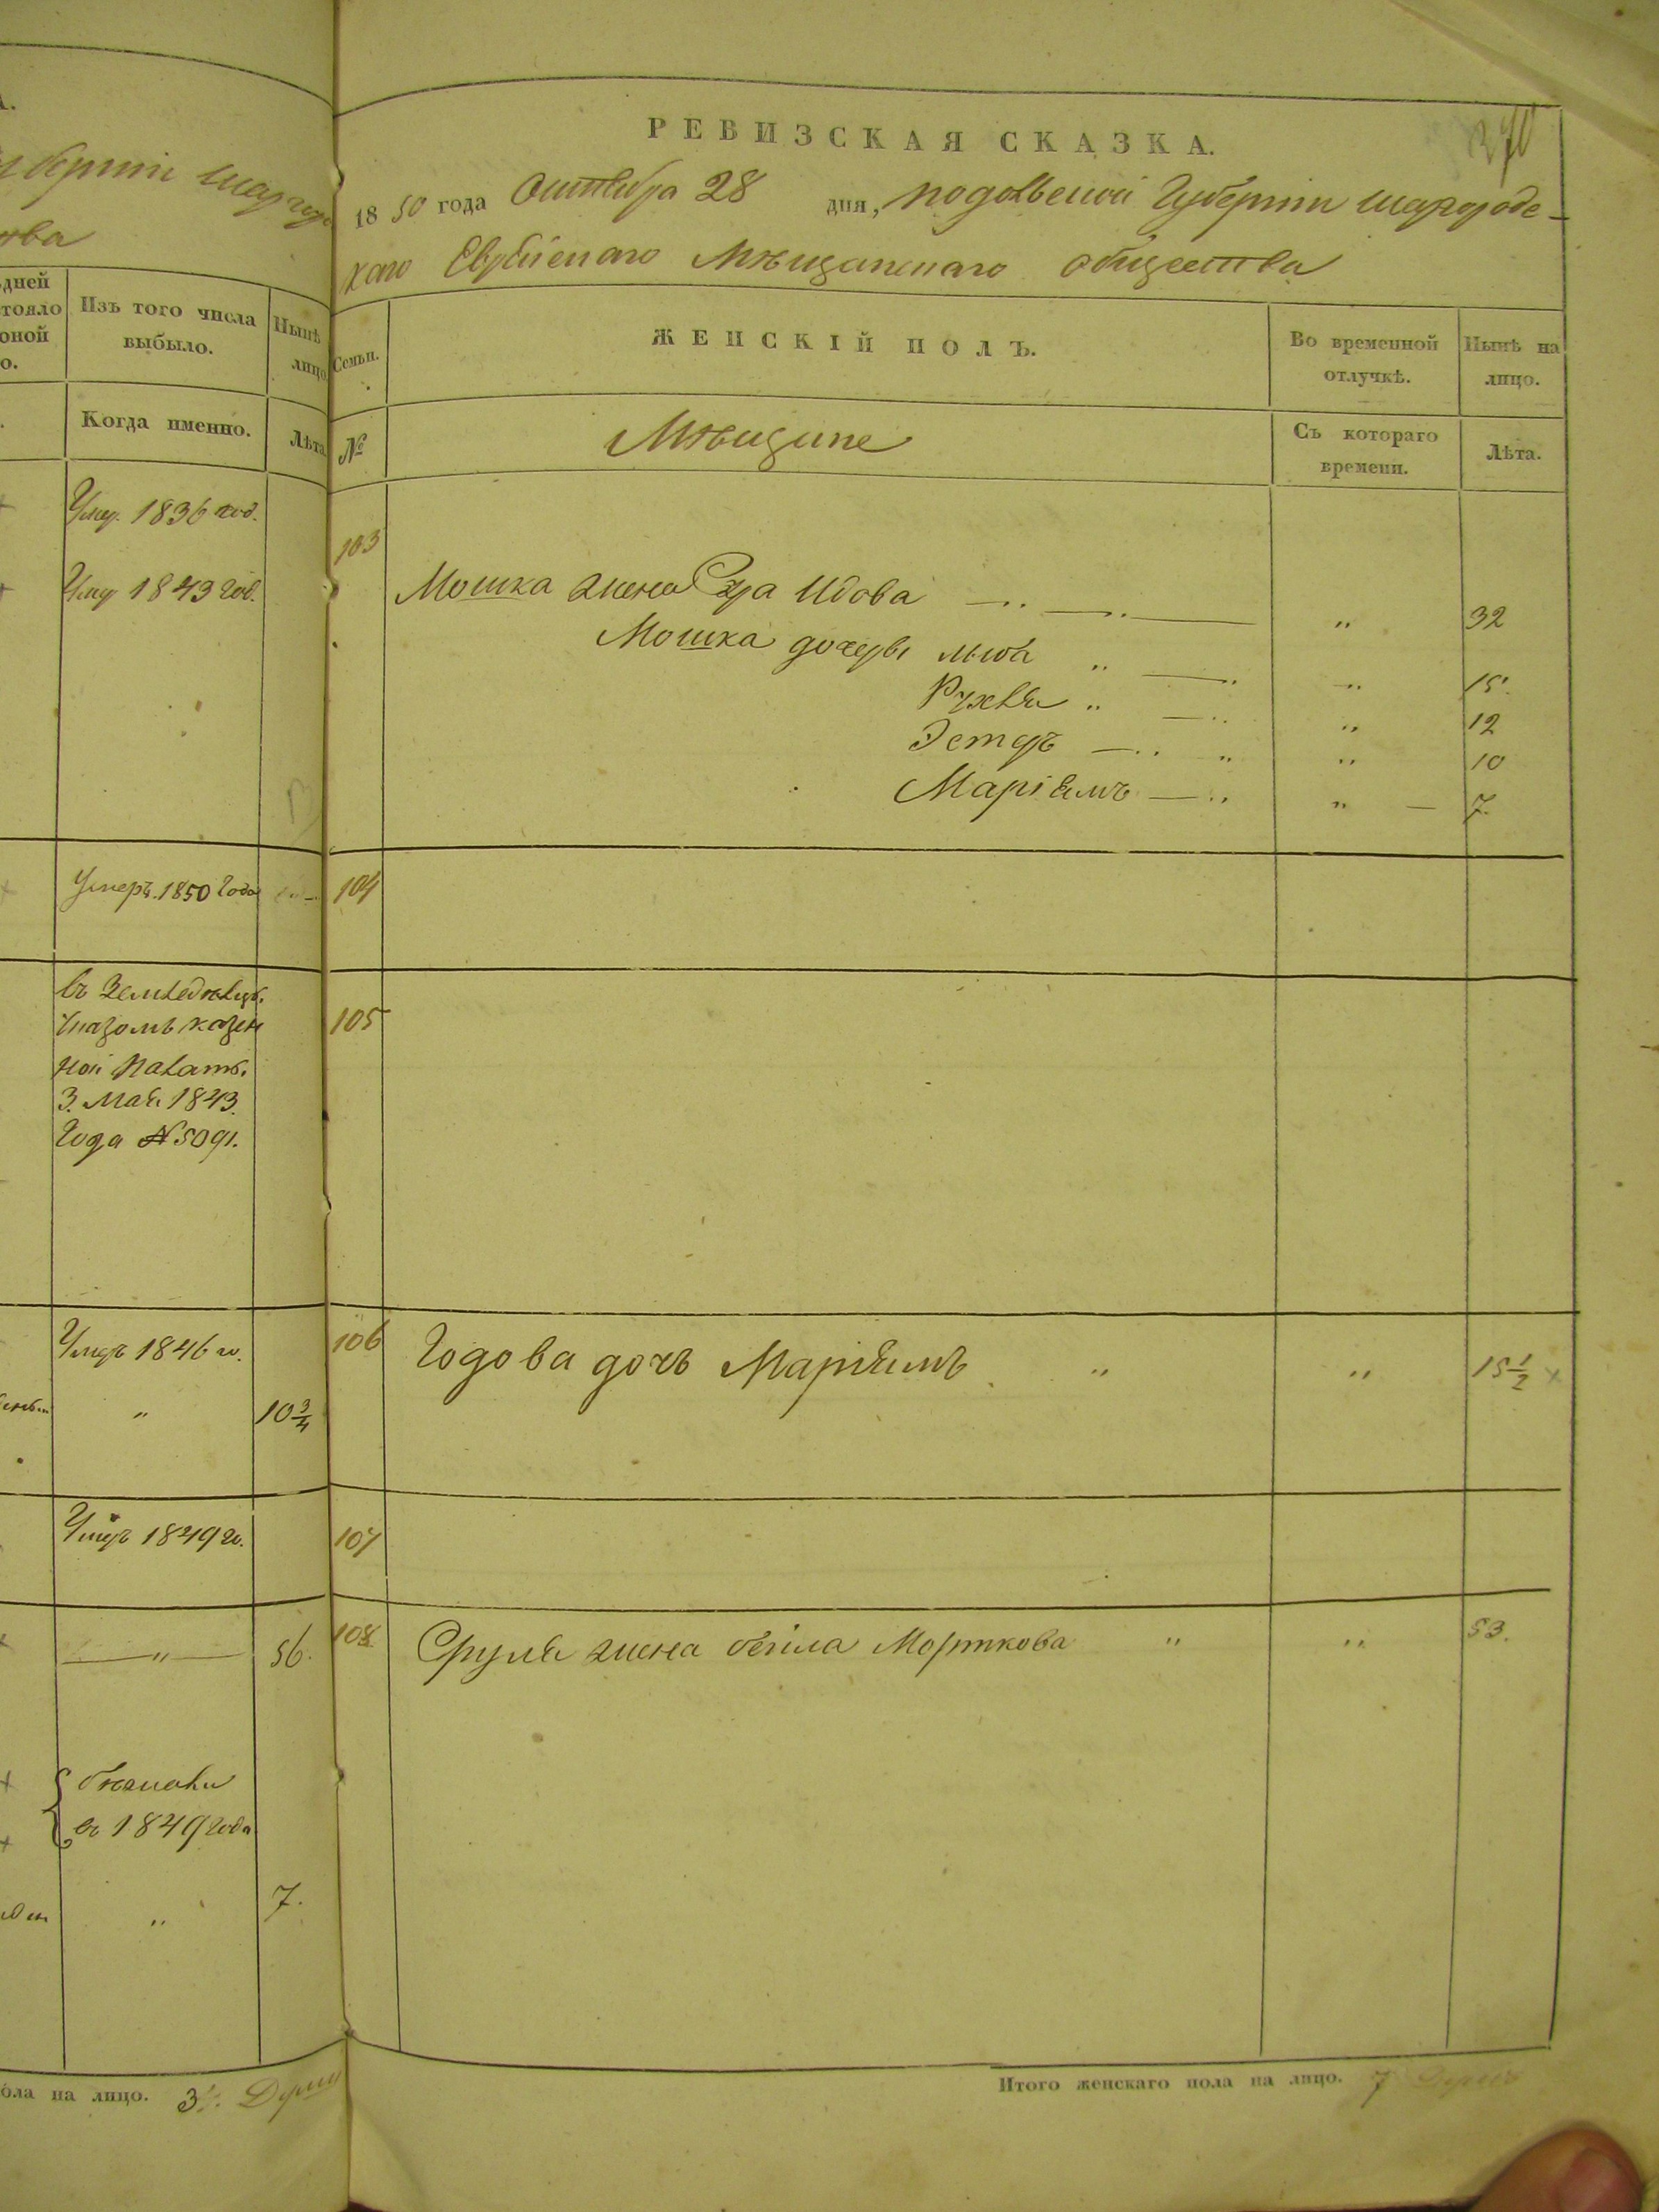 А.
ства
дней
стояло
оной
о.
Изъ того числа
выбыло.
Нынѣ
лицо
Когда именно.
Лѣта
Умер. 1836 год.
Умер 1843 год.
Умеръ. 1850 года
въ Земледѣльцы.
указомъ казен
ной Палаты.
3. Мая 1843.
Года №5091.
Умеръ 1846 го.
" 10 3/4
Умеръ 1849 го.
— " — 56.
въ 1849 года
" 7.
пола на лицо. 3 Души
370
РЕВИЗСКАЯ СКАЗКА.
1850 года Октября 28 дня, Подольской Губерніи Шаргородс-
каго Еврейскаго Мѣщанскаго общества
Семьи.
ЖЕНСКІЙ ПОЛЪ.
Во временной
отлучкѣ.
Нынѣ на
лицо.
№
Мѣщане
Съ котораго
времени.
Лѣта.
103
Мошка жена Сура Идова " 32
Мошка дочеры " 15.
Рухля " " 12
Эстеръ " " 10
Маріямъ " — 7.
104
105
106 Годова дочъ Маріямъ " " 15 1/2
107
108 Сруля жена бейла Морткова " " 53.
Итого женскаго пола на лицо. 7 Душъ